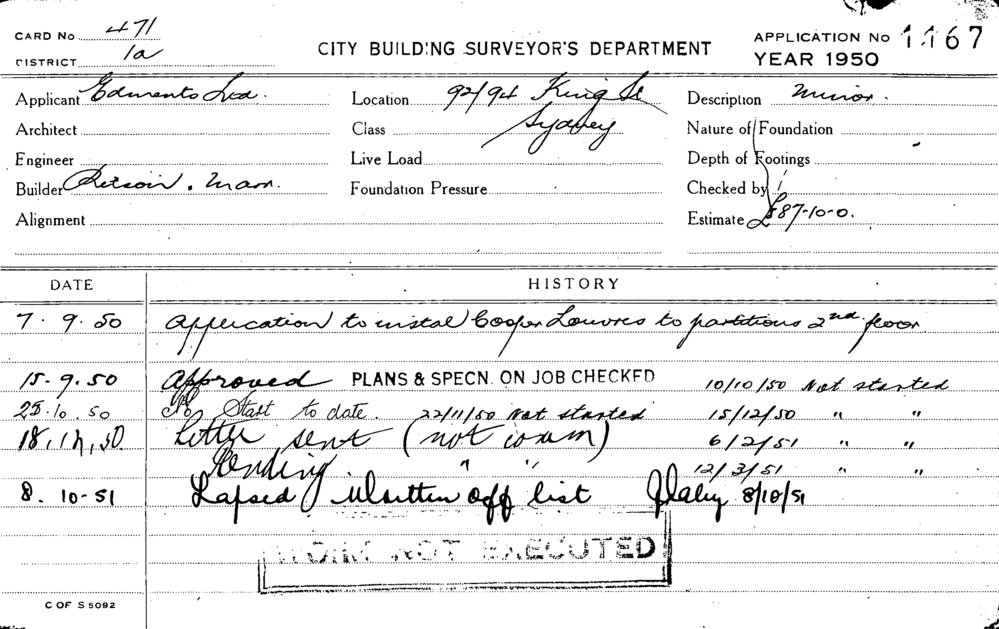 CARD No 471
DISTRICT 1a
CITY BUILDING SURVEYOR'S DEPARTMENT
APPLICATION No 1167
YEAR 1950
Applicant Edments Ltd.
Location 92/94 King St
Sydney
Description Minor.
Architect
Class
Nature of Foundation
Engineer
Live Load
Depth of Footings
Builder
Foundation Pressure
Checked by
Alignment
Estimate £87-10-0.
DATE
HISTORY
7.9.50 Application to instal Cooper Louvres to partitions 2nd floor
15.9.50 Approved PLANS & SPECN. ON JOB CHECKED 10/10/50 Not started
25.10.50 No Start to date. 22/11/50 Not started 15/12/50 " "
18.12.50 Letter sent (not comm) 6/2/51 " "
Pending " " 12/3/51 " "
8.10-51 Lapsed Written off list 8/10/51
WORK NOT EXECUTED
C OF S 5092